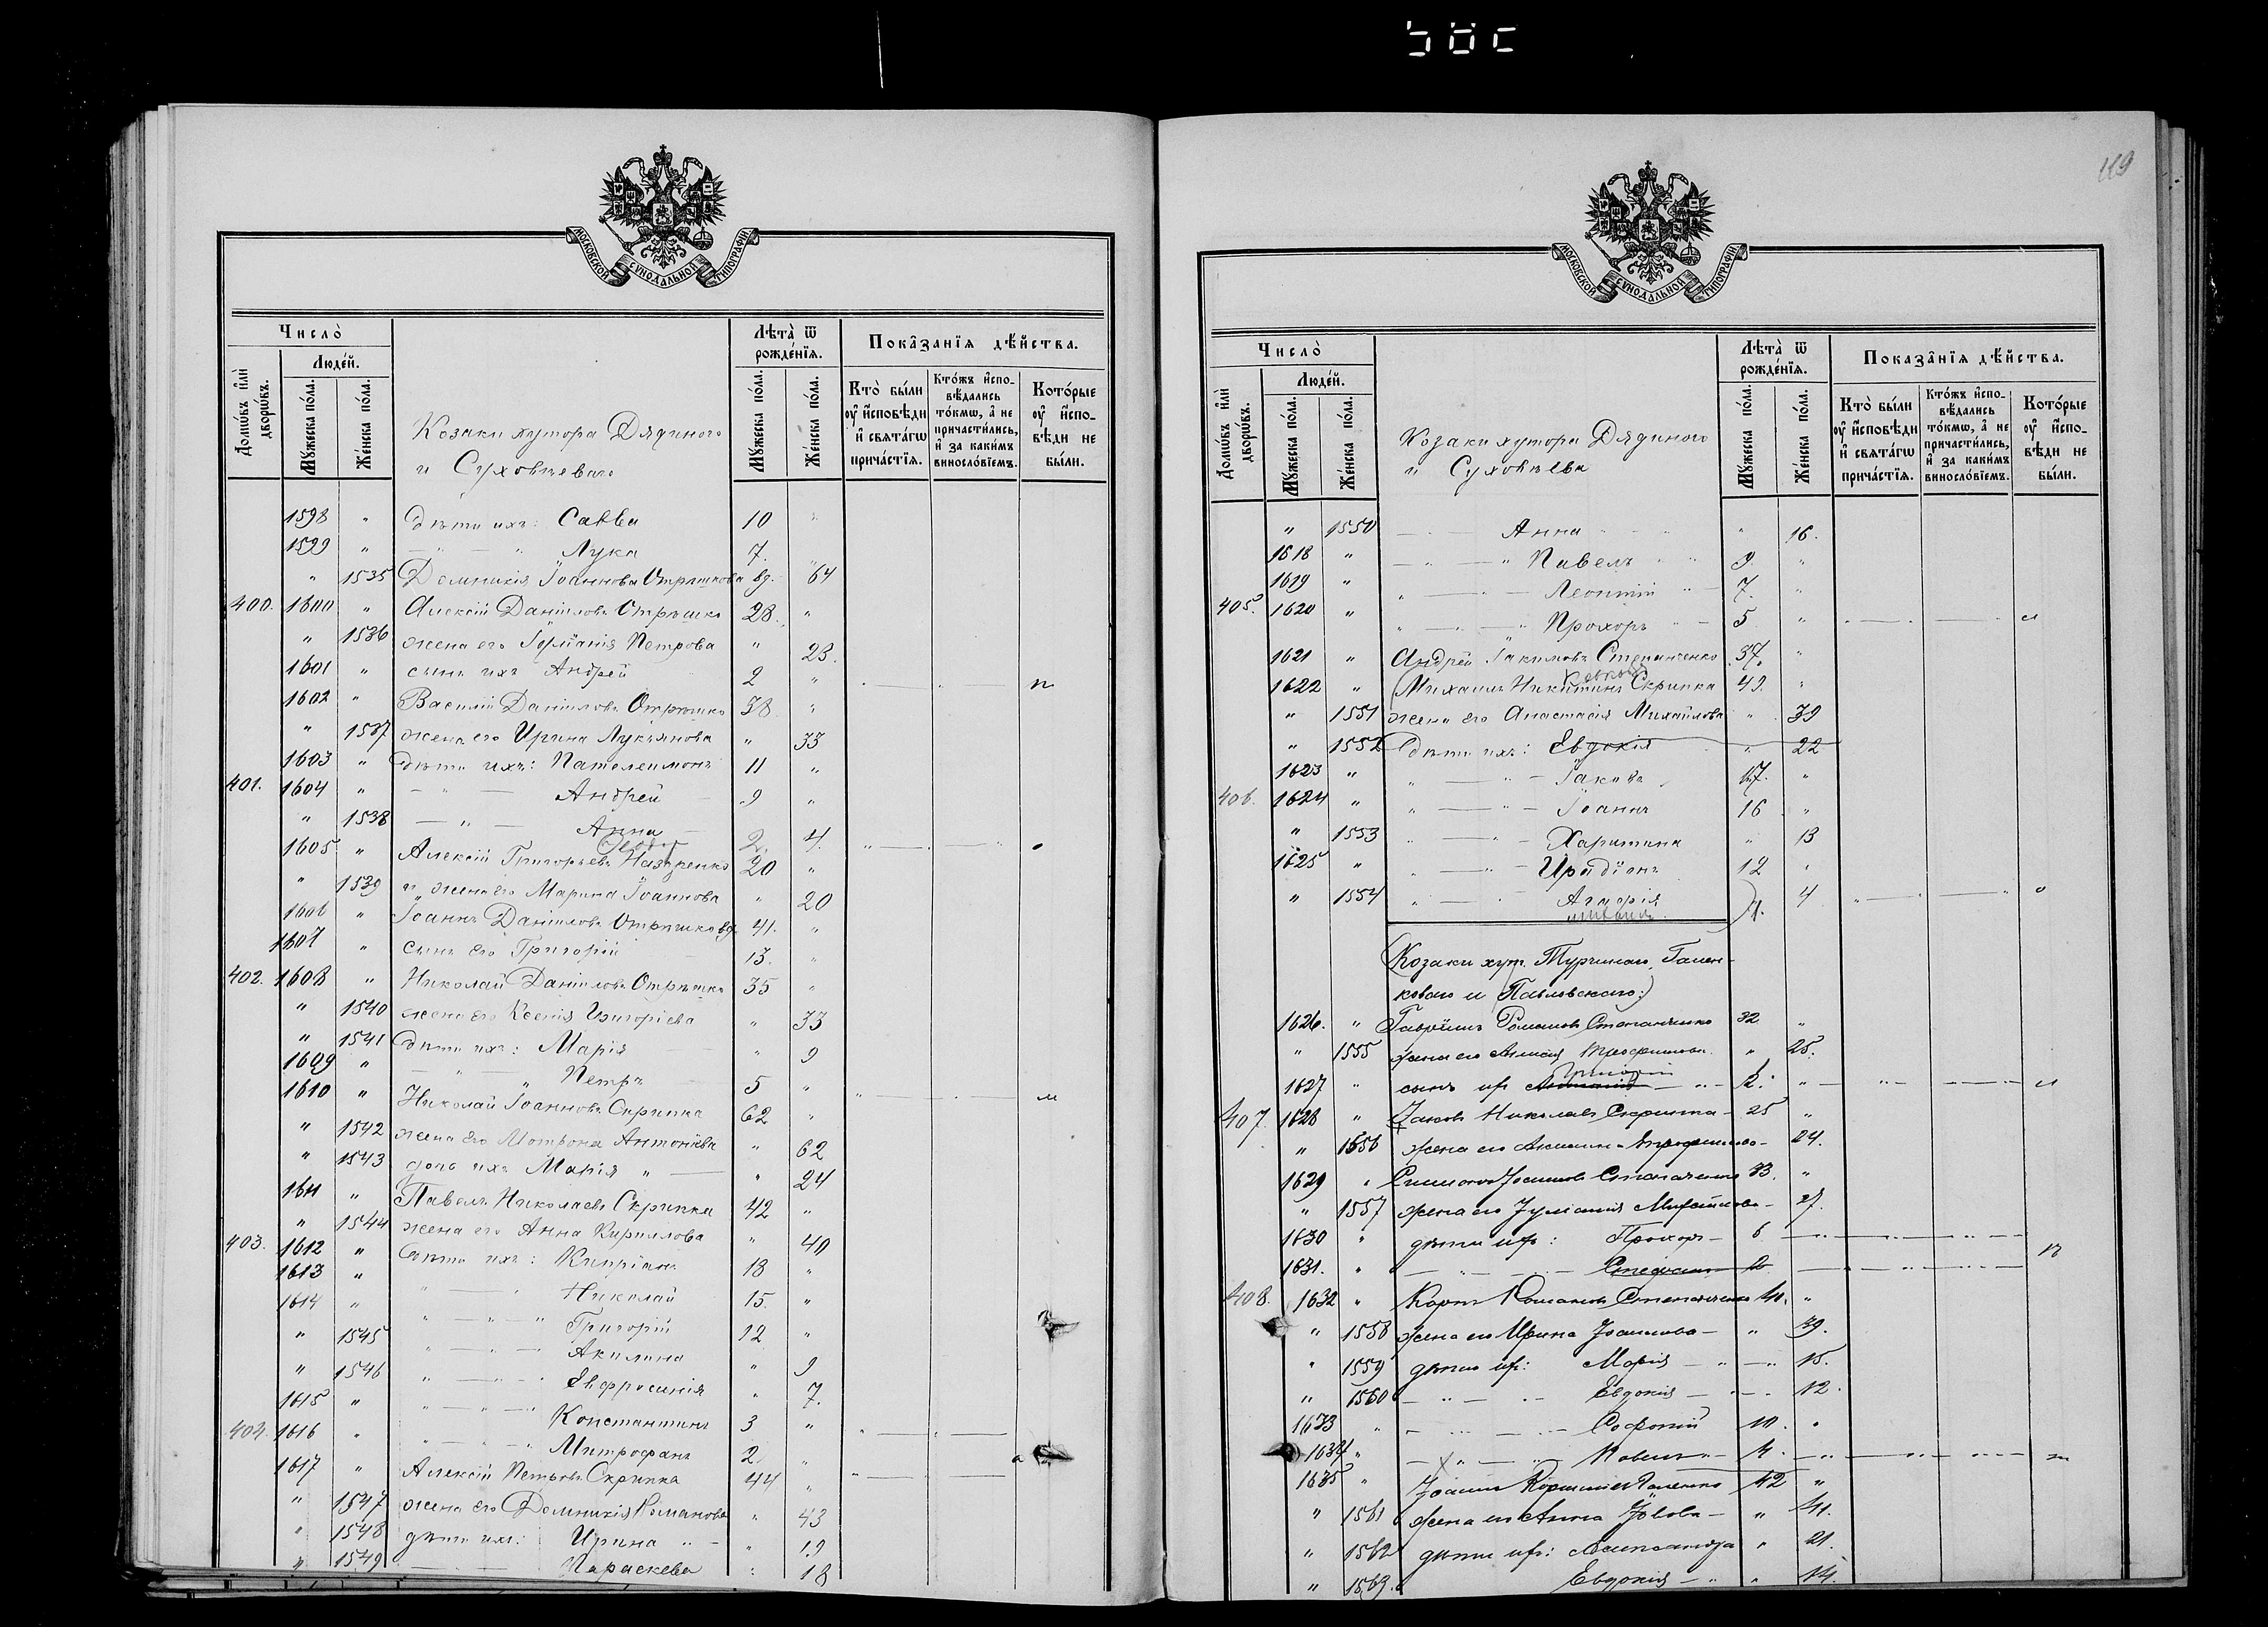 119
МОСКОВСКОЙ СѴНОДАЛЬНОЙ ТИПОГРАФІИ
Число̀
Людей.
Домѡвъ и҆лѝ дворѡвъ.
Мꙋжеска по́ла.
Же́нска по́ла.
Козаки хутора Дядиного
и Суховѣевого
Лѣта̀ ѿ рожде́нїѧ.
Мꙋжеска по́ла.
Же́нска по́ла.
Пока̑занїѧ дѣ́йства.
Кто̀ бы́ли оу҆ и҆сповѣди и҆ свѧта́гѡ прича́стїѧ.
Кто́жъ и҆спо-вѣдались то́кмѡ, а҆ не причасти́лись, и҆ за каки́мъ винослові́емъ.
Кото́рые оу҆ и҆спо-вѣди не бы́ли.
1598 " Дѣти ихъ: Савва 10 "
1599 " — " — " Лука 7. "
" 1535 Домникія Іоаннова Отришкова вд. 64
400. 1600 " Алексій Даніиловъ Отрѣшко 28. "
" 1536 жена его Іуліанія Петрова " 23.
1601 " сынъ ихъ Андрей 2 "
1602 " Василій Даніиловъ Отрѣшко 38 "
" 1537 жена его Ирина Лукьянова " 33
1603 " дѣти ихъ: Пателеимонъ 11 "
401. 1604 " — " — Андрей 9 "
" 1538 — " — Анна 4.
2.
1605 " Алексій Григорьевъ Назаренко 20 "
" 1539 и жена его Марина Іоаннова " 20
1606 " Іоаннъ Даніиловъ Отришко вд. 41. "
1607 " сынъ его Григорій 13. "
402. 1608 " Николай Даніиловъ Отрѣшко 35 "
" 1540 жена его Ксенія Григоріева " 33
" 1541 Дѣти ихъ: Марія " 9
1609 " — " — " Петръ 5 "
1610 " Николай Іоанновъ Скрипка 62 "
" 1542 жена его Мотрона Антоніева " 62
" 1543 дочь ихъ Марія " — " 24
1611 " Павелъ Николаевъ Скрипка 42 "
" 1544 жена его Анна Кириллова " 40
403. 1612 " Дѣти ихъ: Кипріанъ 18 "
1613 " " — " Николай 15. "
1614 " " — " — " Григорій 12 "
" 1545 " — " — " Акилина " 9
" 1546 " — " — " Евфросинія " 7.
1615 " " — " — " Константинъ 3 "
404. 1616 " " — " — " Митрофанъ 2 "
1617 " Алексій Петровъ Скрипка 44 "
" 1547 жена его Домникія Романова " 43
" 1548 дѣти ихъ: Ирина " — " 19
" 1549 — — Параскева " 18
МОСКОВСКОЙ СѴНОДАЛЬНОЙ ТИПОГРАФІИ
Число̀
Людей.
Домѡвъ и҆лѝ дворѡвъ.
Мꙋжеска по́ла.
Же́нска по́ла.
Козаки хутора Дядиного
и Суховѣева
Лѣта̀ ѿ рожде́нїѧ.
Мꙋжеска по́ла.
Же́нска по́ла.
Пока̑занїѧ дѣ́йства.
Кто̀ бы́ли оу҆ и҆сповѣди и҆ свѧта́гѡ прича́стїѧ.
Кто́жъ и҆спо-вѣдались то́кмѡ, а҆ не причасти́лись, и҆ за каки́мъ винослові́емъ.
Кото́рые оу҆ и҆спо-вѣди не бы́ли.
" 1550 — " — Анна " 16.
1618 " — " — " Павелъ 9. "
1619 " " — " — Леонтій 7. "
405. 1620 " " — " — " Прохоръ 5 "
1621 " Андрей Іакимовъ Степанченко 37. "
1622 " Михаилъ Никитинъ Скрипка 49. "
" 1551 жена его Анастасія Михайлова " 39
" 1552 Дѣти ихъ: Евдокія " 22
1623 " " — " — Іаковъ 17. "
406. 1624 " " — " — Іоаннъ 16 "
" 1553 " — " — Харитина " 13
1625 " " — " — Иродіонъ 12 "
" 1554 " — " 4
Козаки хут. Туришкаго, Гален-
коваго и Павловскаго:
1626. " Гавріилъ Романовъ Степанченко 32 "
" 1555 жена его Трофимова " 25.
1627 " сынъ их Григорій 2. "
407. 1628 " Іаковъ Николаевъ Скрипка — 25 "
" 1556 жена его Трофимова — 24.
1629 " Степанченко 33. "
" 1557 жена его Іуліанія Михайлова — 27.
1630 " дѣти их: Прохоръ — 6
1631. " — " — Стефанъ
408. 1632 " Романовъ Степанченко 41. "
" 1558 жена его Ирина Іоаннова — " 39.
" 1559 дѣти их: Марія — " — 15.
" 1560 — " — Евдокія — " — 12.
1633 " — " — Софоній 10. "
1634 " — " — Павелъ " — 4.
1635 " Іоаннъ 42 "
" 1561 жена его Анна Іовова — " 41.
" 1562 дѣти их: Александра " 21.
" 1563. Евдокія — " " 14.